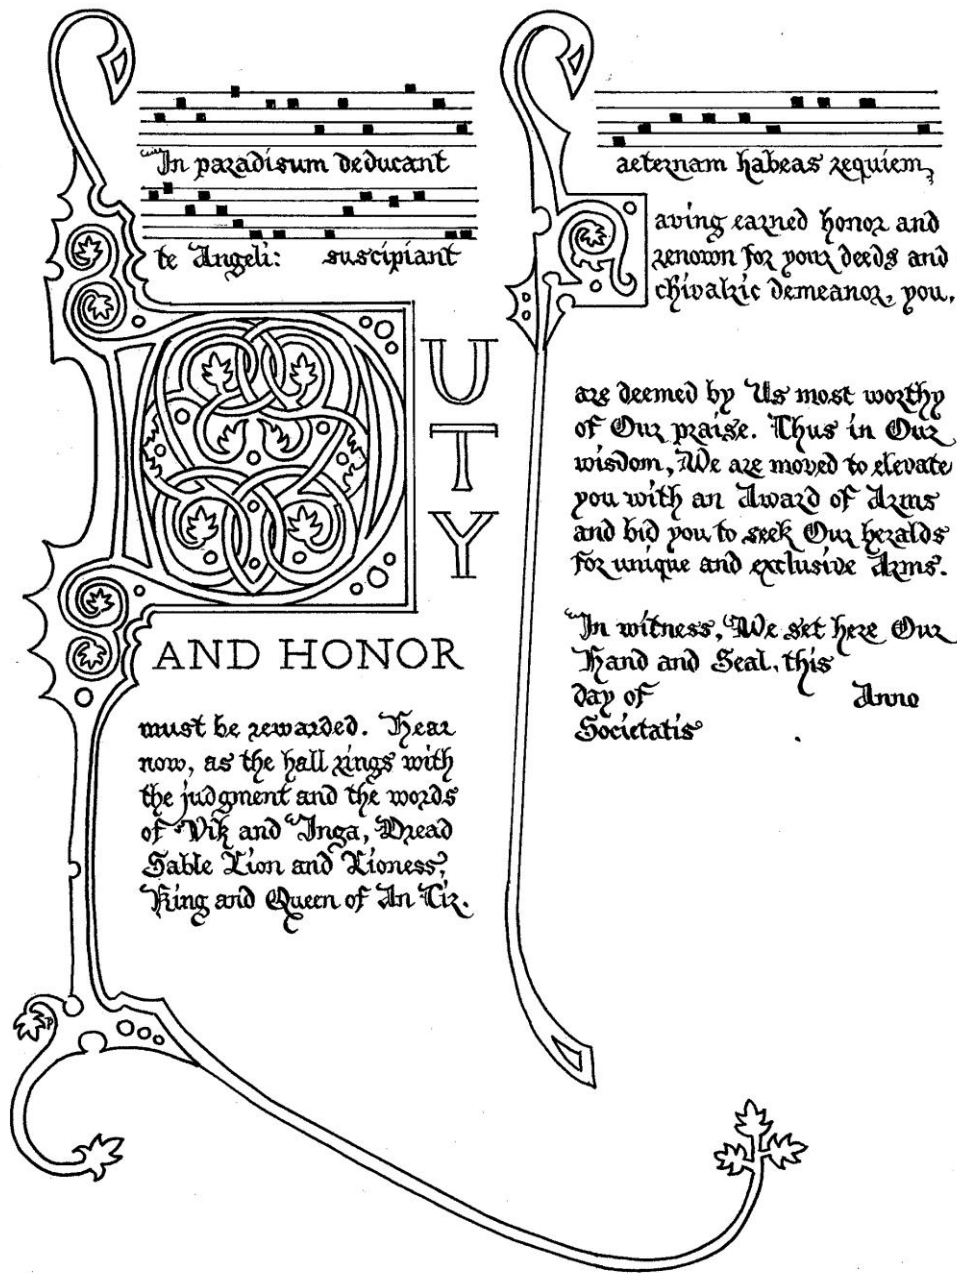 In paradisum deducant
te Angeli: suscipiant
DUTY
AND HONOR
must be rewarded. Hear
now, as the hall rings with
the judgment and the words
of Vik and Inga, Dread
Sable Lion and Lioness,
King and Queen of An Tir.
aeternam habeas requiem,
Having earned honor and
renown for your deeds and
chivalric demeanor, you,
are deemed by Us most worthy
of Our praise. Thus in Our
wisdom, We are moved to elevate
you with an Award of Arms
and bid you to seek Our heralds
for unique and exclusive Arms.
In witness, We set here Our
Hand and Seal, this
day of Anno
Societatis .